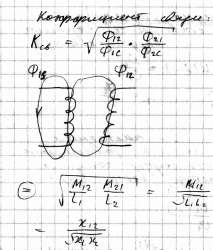 Коэффициент связи:
K_св = √(Ф₁₂/Ф₁с · Ф₂₁/Ф₂с)
Ф₁₂
= √(M₁₂/L₁ · M₂₁/L₂) = M₁₂/√(L₁L₂)
= x₁₂/√(x₁x₂)